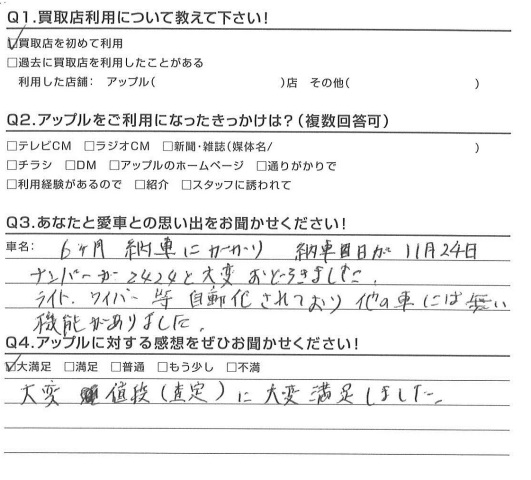 Q1.買取店利用について教えて下さい!
☑買取店を初めて利用
□過去に買取店を利用したことがある
利用した店舗: アップル( )店 その他( )
Q2.アップルをご利用になったきっかけは?(複数回答可)
□テレビCM □ラジオCM □新聞・雑誌(媒体名/ )
□チラシ □DM □アップルのホームページ □通りがかりで
□利用経験があるので □紹介 □スタッフに誘われて
Q3.あなたと愛車との思い出をお聞かせください!
車名: 6ヶ月 納車にかかり 納車日が 11月24日
ナンバーが2424と大変おどろきました。
ライト.ワイパー等 自動化されており 他の車には無い
機能がありました。
Q4.アップルに対する感想をぜひお聞かせください!
☑大満足 □満足 □普通 □もう少し □不満
大変 値段(査定)に大変満足しました。